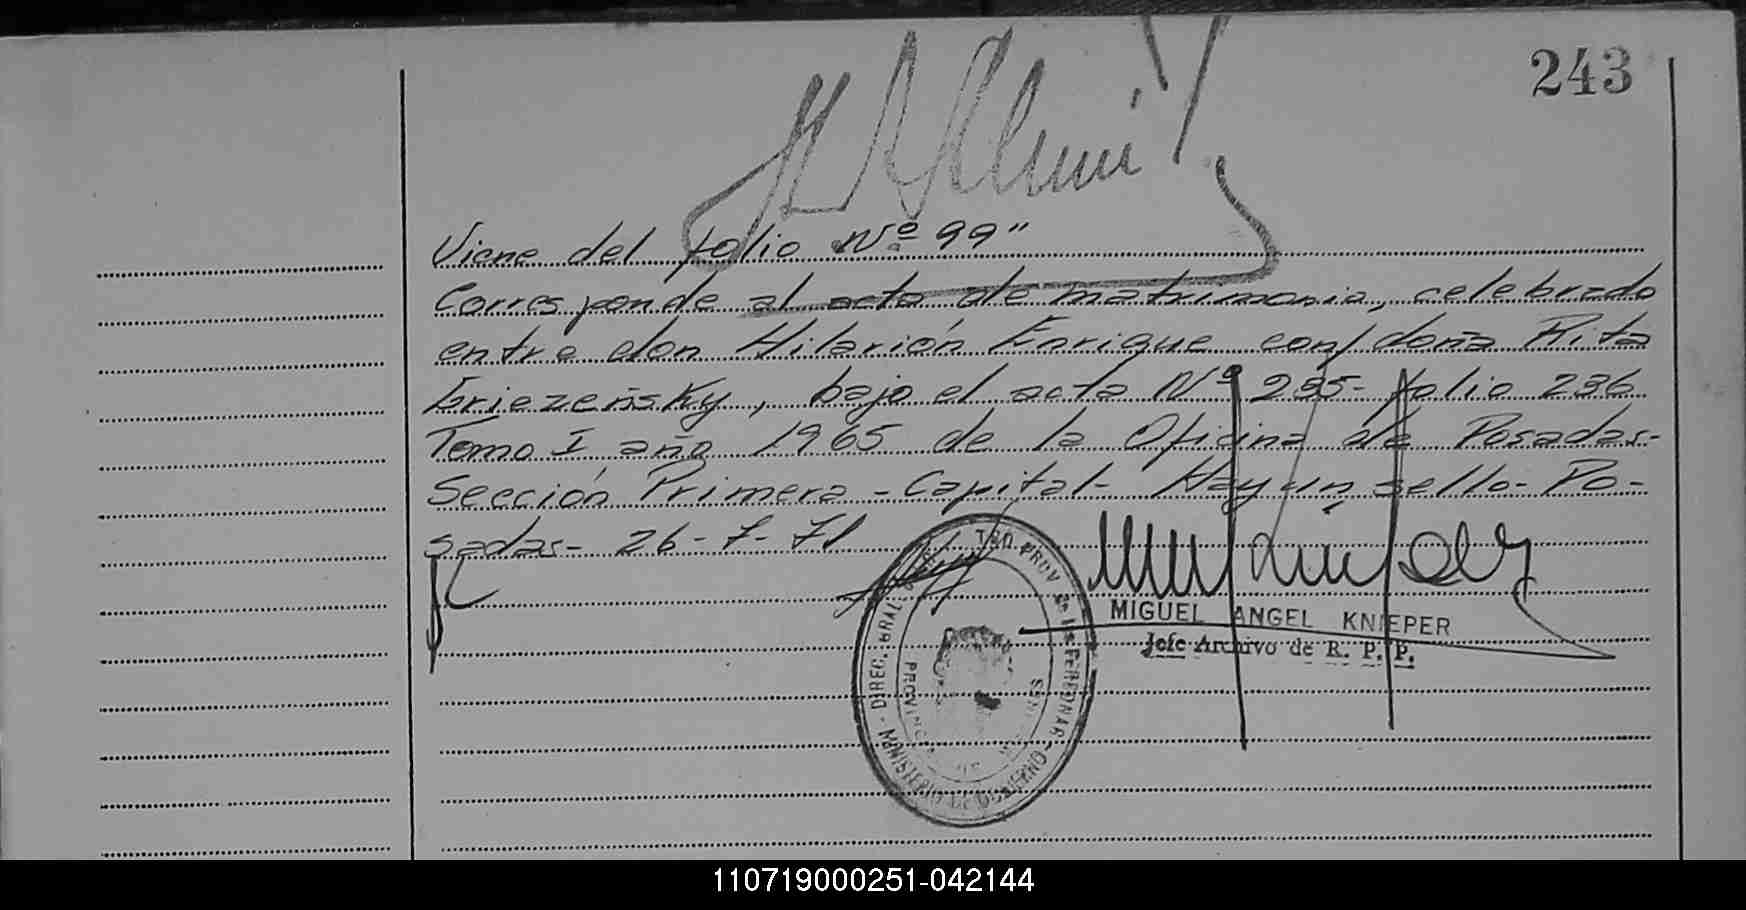 243
Viene del folio Nº 99"
Corresponde al acta de matrimonio, celebrado
entre don Hilarión Enrique con doña Rita
Griezeñsky, bajo el acta Nº 235- folio 236
Tomo I año 1965 de la Oficina de Posadas-
Sección Primera - Capital- Hay un sello- Po-
sadas- 26-7-71
MIGUEL ANGEL KNIEPER
Jefe Archivo de R. P. P.
DIREC. GRAL. PROV. DE LAS PERSONAS
MINISTERIO DE GOBIERNO
PROVINCIA DE MISIONES
110719000251-042144